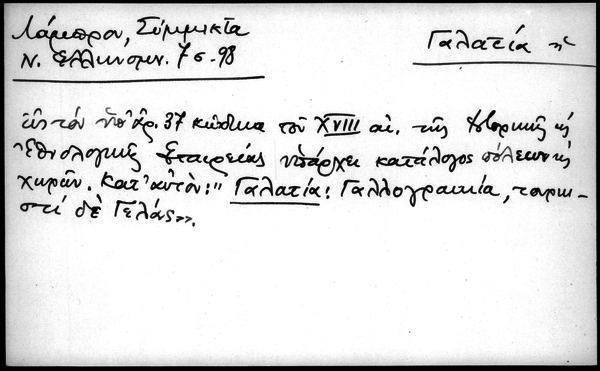 Λάμπρου, Σύμμικτα
Ν. Ελληνομν. 7 σ. 98
Γαλατία ἡ
Εἰς τὸν ὑπ' ἀρ. 37 κώδικα τοῦ XVIII αἰ. τῆς Ἱστορικῆς κ
Ἐθνολογικῆς Ἑταιρείας ὑπάρχει κατάλογος πόλεων κ
χωρῶν. Κατ' αὐτὸν: "Γαλατία: Γαλλογραικία, τουρκι-
στὶ δὲ Γελάς».